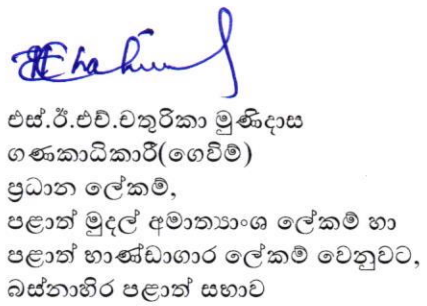 එස්.ඊ.එච්.චතුරිකා මුණිදාස
ගණකාධිකාරී(ගෙවිම්)
ප්‍රධාන ලේකම්,
පළාත් මුදල් අමාත්‍යාංශ ලේකම් හා
පළාත් භාණ්ඩාගාර ලේකම් වෙනුවට,
බස්නාහිර පළාත් සභාව